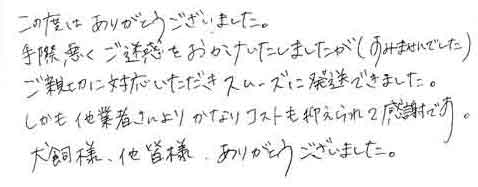 この度は ありがとうございました。
手際無くご迷惑をおかけいたしましたが(すみませんでした)
ご親切に対応いただきスムーズに発送できました。
しかも他業者さんより かなりコストも抑えられて感謝です。
犬飼様、他皆様、ありがとうございました。